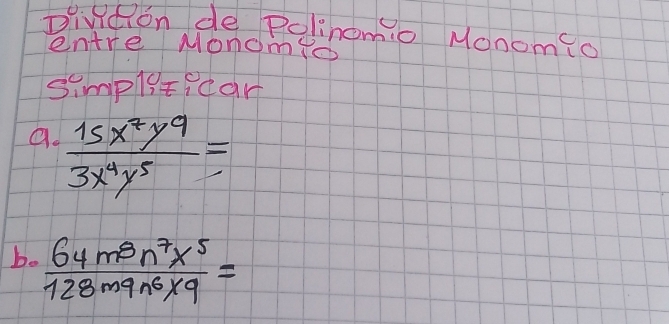 División de Polinomio Monomio
entre Monomio
Simplificar
a. 15x⁷y⁹ / 3x⁴y⁵ =
b. 64m⁸n⁷x⁵ / 128m9n⁶x9 =